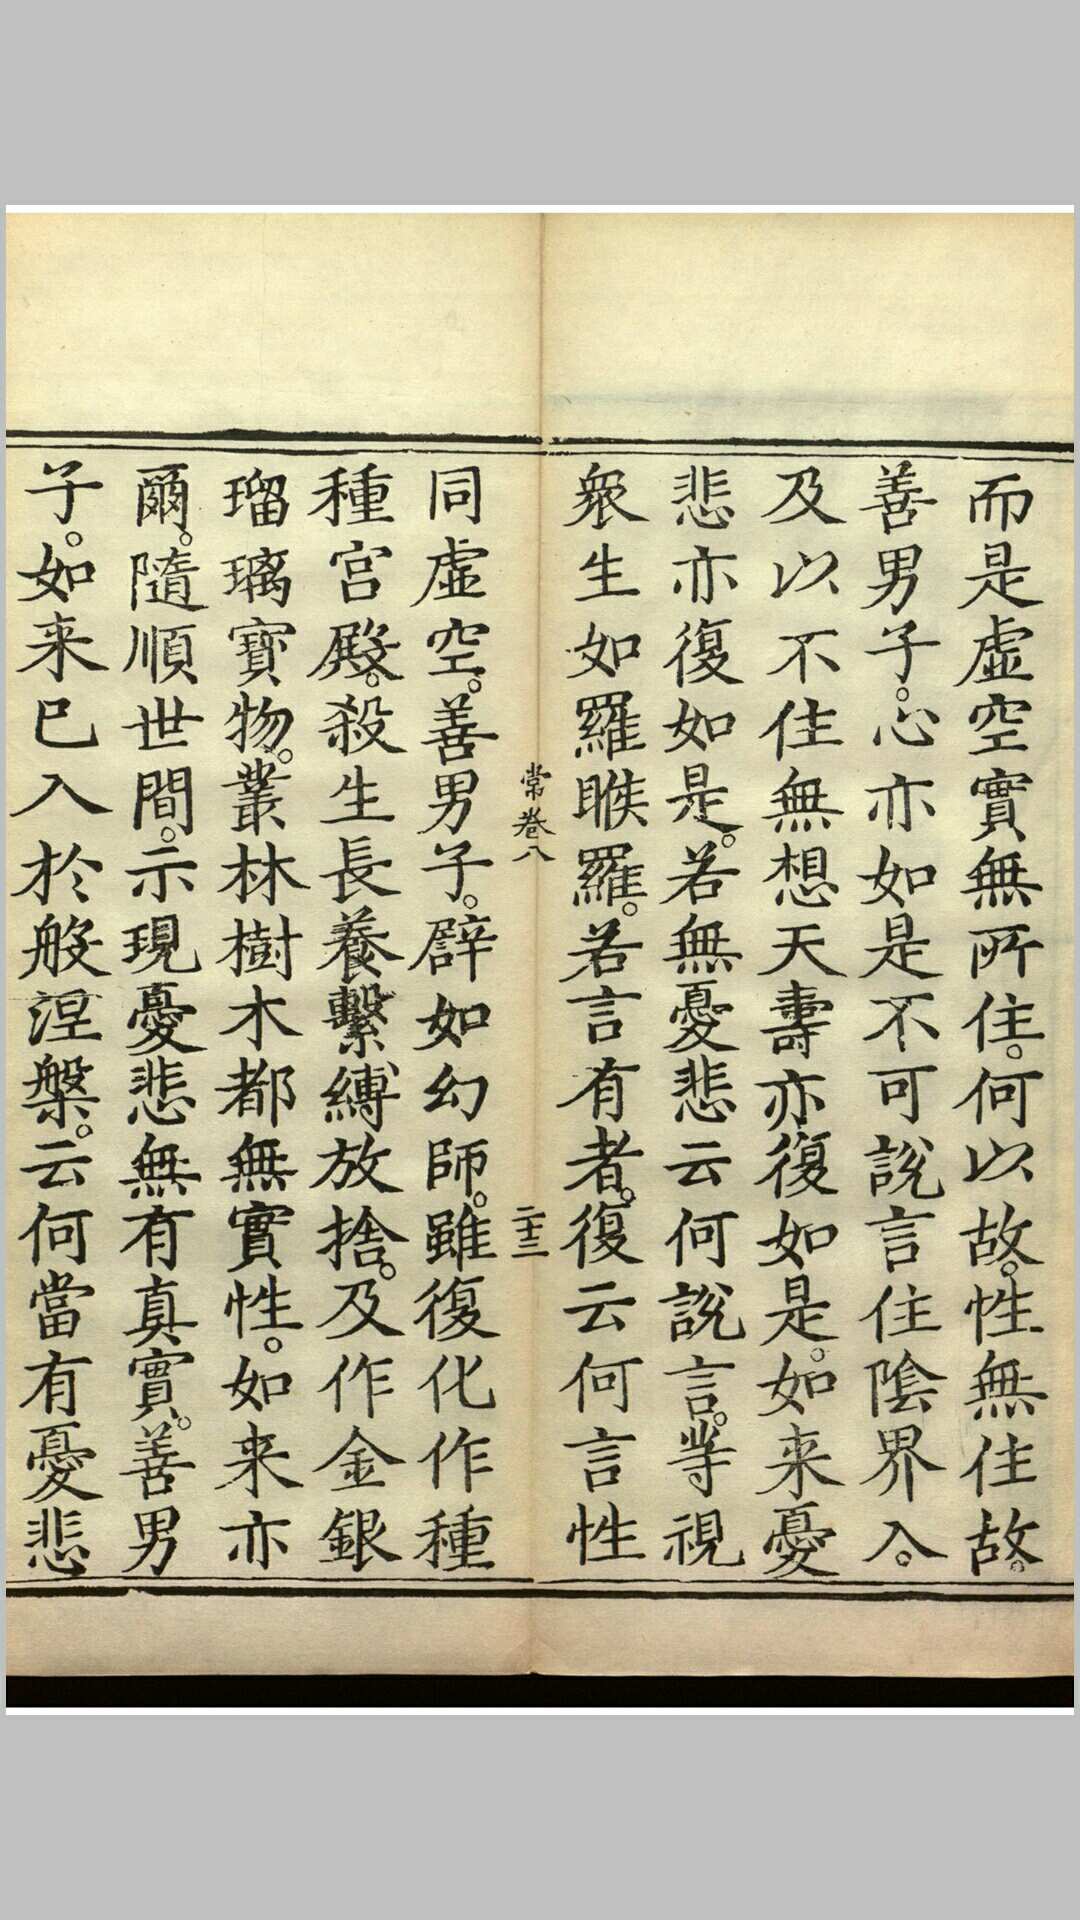 而是虛空實無所住。何以故。性無住故。
善男子。心亦如是不可說言住陰界入。
及以不住無想天壽亦復如是。如来憂
悲亦復如是。若無憂悲云何說言。等視
衆生如羅睺羅。若言有者。復云何言性
常卷八
二十三
同虛空。善男子。譬如幻師。雖復化作種
種宮殿。殺生長養繫縛放捨。及作金銀
瑠璃寶物。叢林樹木都無實性。如来亦
爾。隨順世間。示現憂悲無有真實。善男
子。如来已入於般涅槃。云何當有憂悲